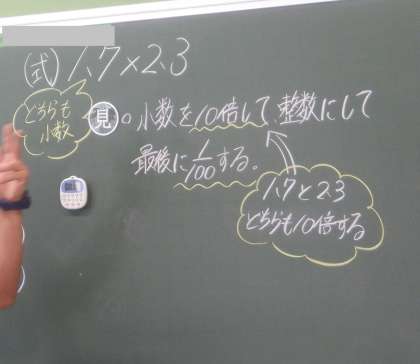 (式) 1.7×2.3
どちらも
小数
見
○小数を10倍して、整数にして
最後に1/100する。
1.7と2.3
どちらも10倍する